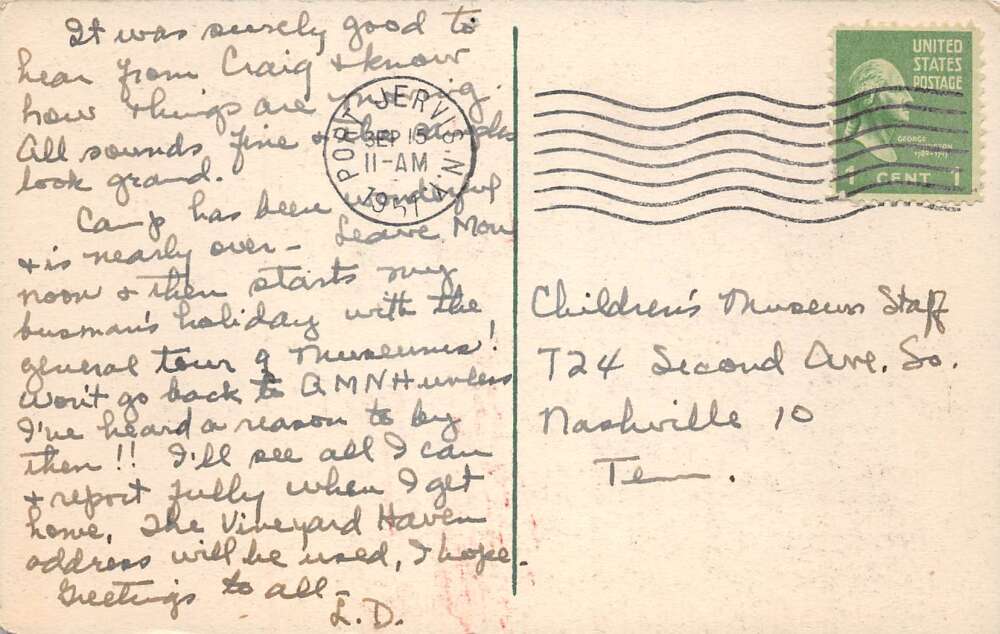 It was surely good to
hear from Craig & know
how things are moving.
All sounds fine & the samples
look grand.
Camp has been wonderful
& is nearly over - Leave Mon
noon & then starts my
busman's holiday with the
general tour of Museums!
Won't go back to AMNH unless
I've heard a reason to by
then!! I'll see all I can
& report fully when I get
home. The Vineyard Haven
address will be used, I hope.
Greetings to all -
L.D.
PORT JERVIS N.Y.
SEP 15
11-AM
1951
UNITED
STATES
POSTAGE
GEORGE
WASHINGTON
1789-1797
1 CENT 1
Children's Museum Staff
724 Second Ave. So.
Nashville 10
Tenn.